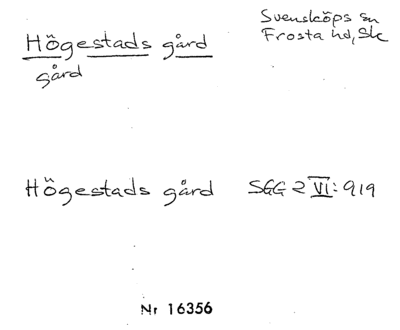 Högestads gård
gård
Svensköps sn
Frosta hd, Sk
Högestads gård SGG 2 VI: 919
Nr 16356